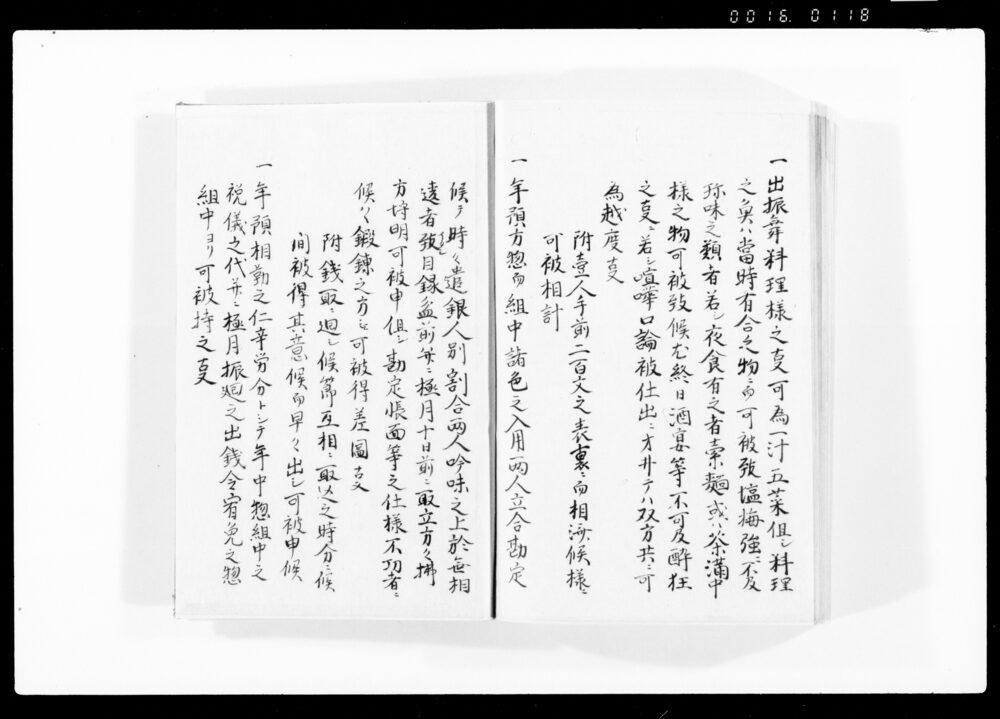 0016. 0118
一出振舞料理様之叓可為一汁五菜但シ料理
之魚ハ當時有合之物ニ而可被致塩梅強ニ不及
珎味之類者若シ夜食有之者索麺或ハ茶漬中
様之物可被致候尤終日酒宴等不可及酔狂
之叓ニ若シ喧嘩口論被仕出ニ於井テハ双方共ニ可
為越度叓
附壹人手前二百文之表裏ニ而相済候様ニ
可被相計
一年預方惣而組中諸色之入用両人立合勘定
候テ時々遣銀人別割合両人吟味之上於無相
違者致目録盆前并ニ極月十日前ニ取立方々拂
方埒明可被申但シ勘定帳面等之仕様不功者ニ
候ハヽ鍛錬之方江可被得差圖叓
附銭取廻シ候節互相ニ取込之時分ニ候
間被得其意候而早々出シ可被申候
一年預相勤之仁辛労分トシテ年中惣組中之
祝儀之代并ニ極月振廻之出銭令宥免之惣
組中ヨリ可被持之叓